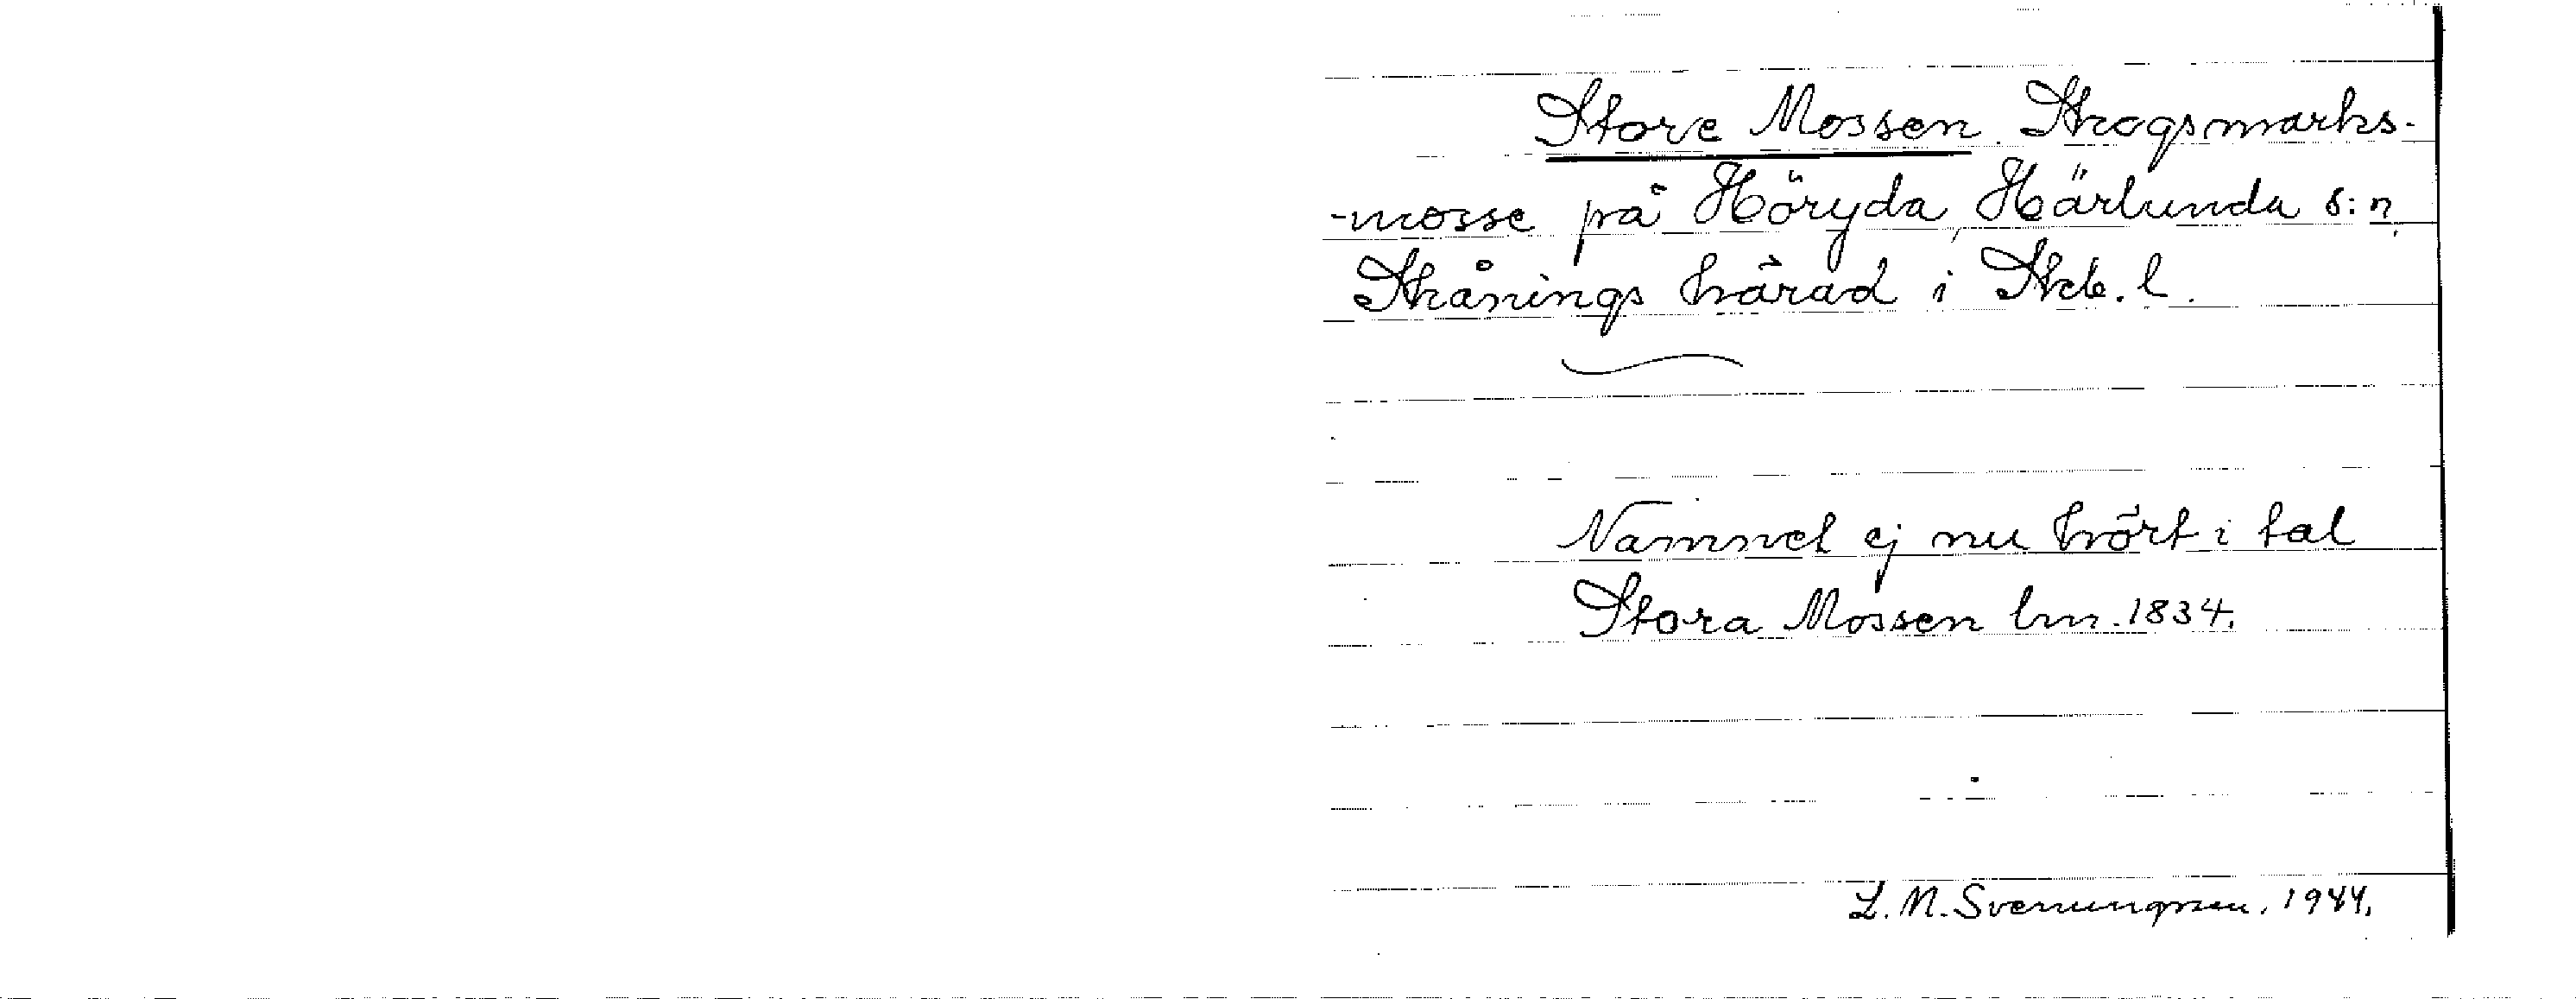 Store Mossen. Skogsmarks-
-mosse på Höryda, Härlunda s:n,
Skånings härad i Skb. l.
Namnet ej nu hört i tal
Stora Mossen lm. 1834.
L. M. Svenungsson. 1944.